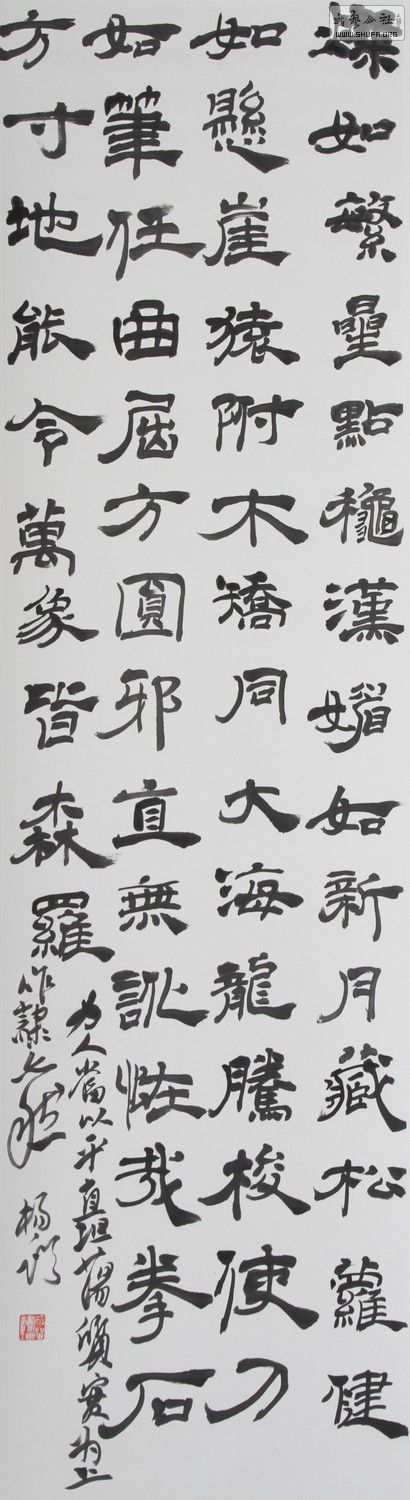 如繁星點龝漢媚如新月藏松蘿健
如懸崖猿附木矯同大海龍騰梭使刀
如筆任曲屈方圓邪直無訛恠哉拳石
方寸地能令萬象皆森羅
为人當以平直坦蕩質實为上
作隸亦然 杨
書藝公社
WWW.SHUFA.ORG